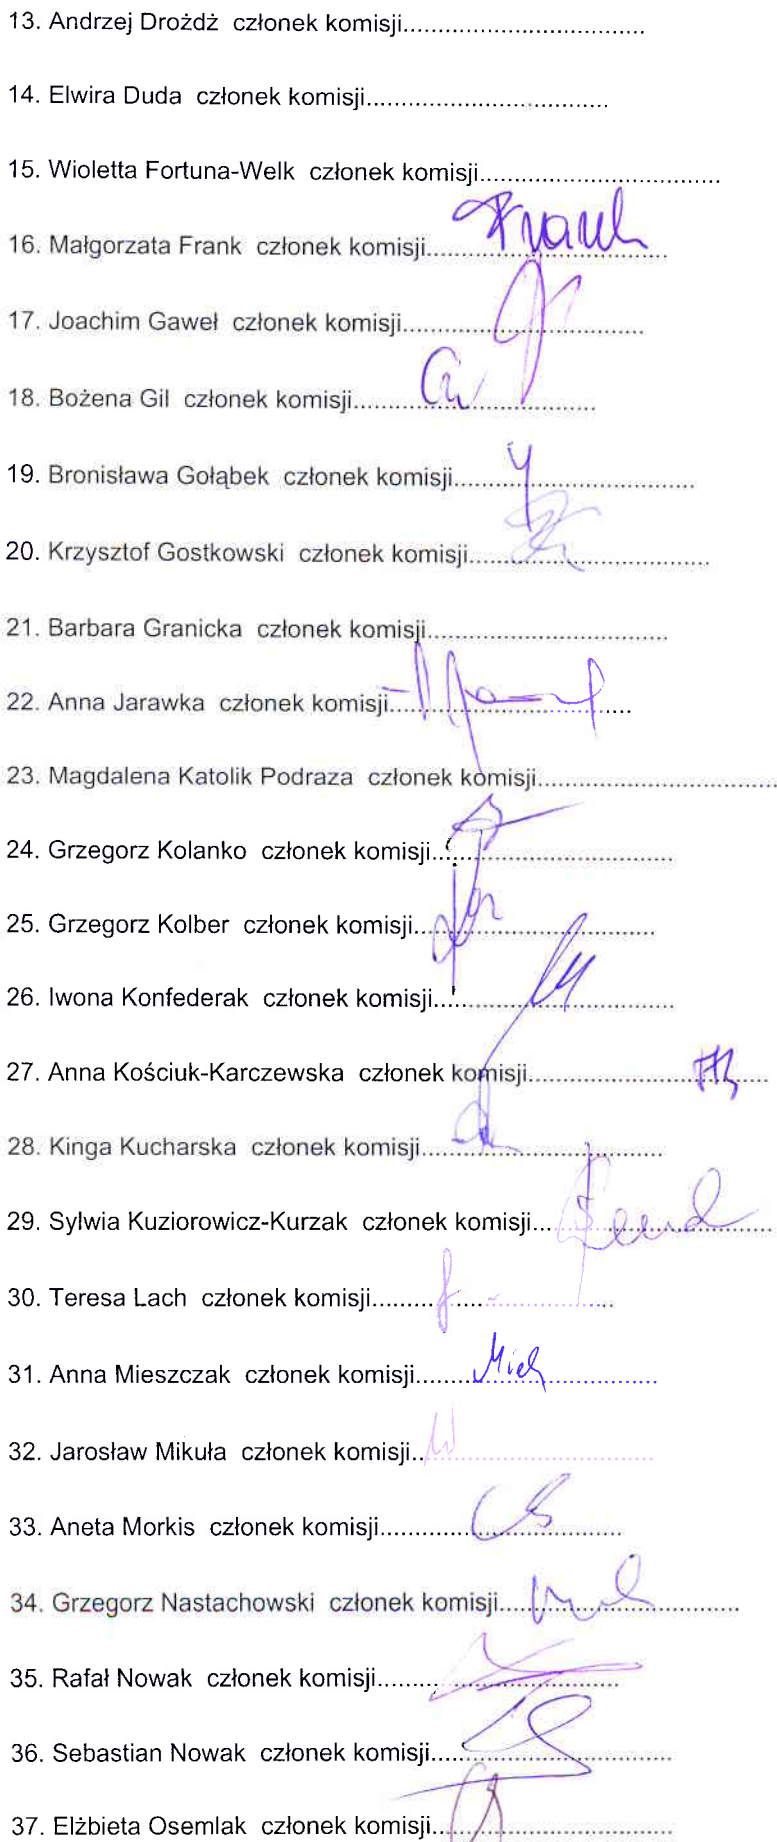 13. Andrzej Drożdż członek komisji...................................
14. Elwira Duda członek komisji...................................
15. Wioletta Fortuna-Welk członek komisji...................................
16. Małgorzata Frank członek komisji................................... Frank
17. Joachim Gaweł członek komisji...................................
18. Bożena Gil członek komisji...................................
19. Bronisława Gołąbek członek komisji...................................
20. Krzysztof Gostkowski członek komisji...................................
21. Barbara Granicka członek komisji...................................
22. Anna Jarawka członek komisji...................................
23. Magdalena Katolik Podraza członek komisji...................................
24. Grzegorz Kolanko członek komisji...................................
25. Grzegorz Kolber członek komisji...................................
26. Iwona Konfederak członek komisji...................................
27. Anna Kościuk-Karczewska członek komisji...................................
28. Kinga Kucharska członek komisji...................................
29. Sylwia Kuziorowicz-Kurzak członek komisji...................................
30. Teresa Lach członek komisji...................................
31. Anna Mieszczak członek komisji...................................
32. Jarosław Mikuła członek komisji...................................
33. Aneta Morkis członek komisji...................................
34. Grzegorz Nastachowski członek komisji...................................
35. Rafał Nowak członek komisji...................................
36. Sebastian Nowak członek komisji...................................
37. Elżbieta Osemlak członek komisji...................................